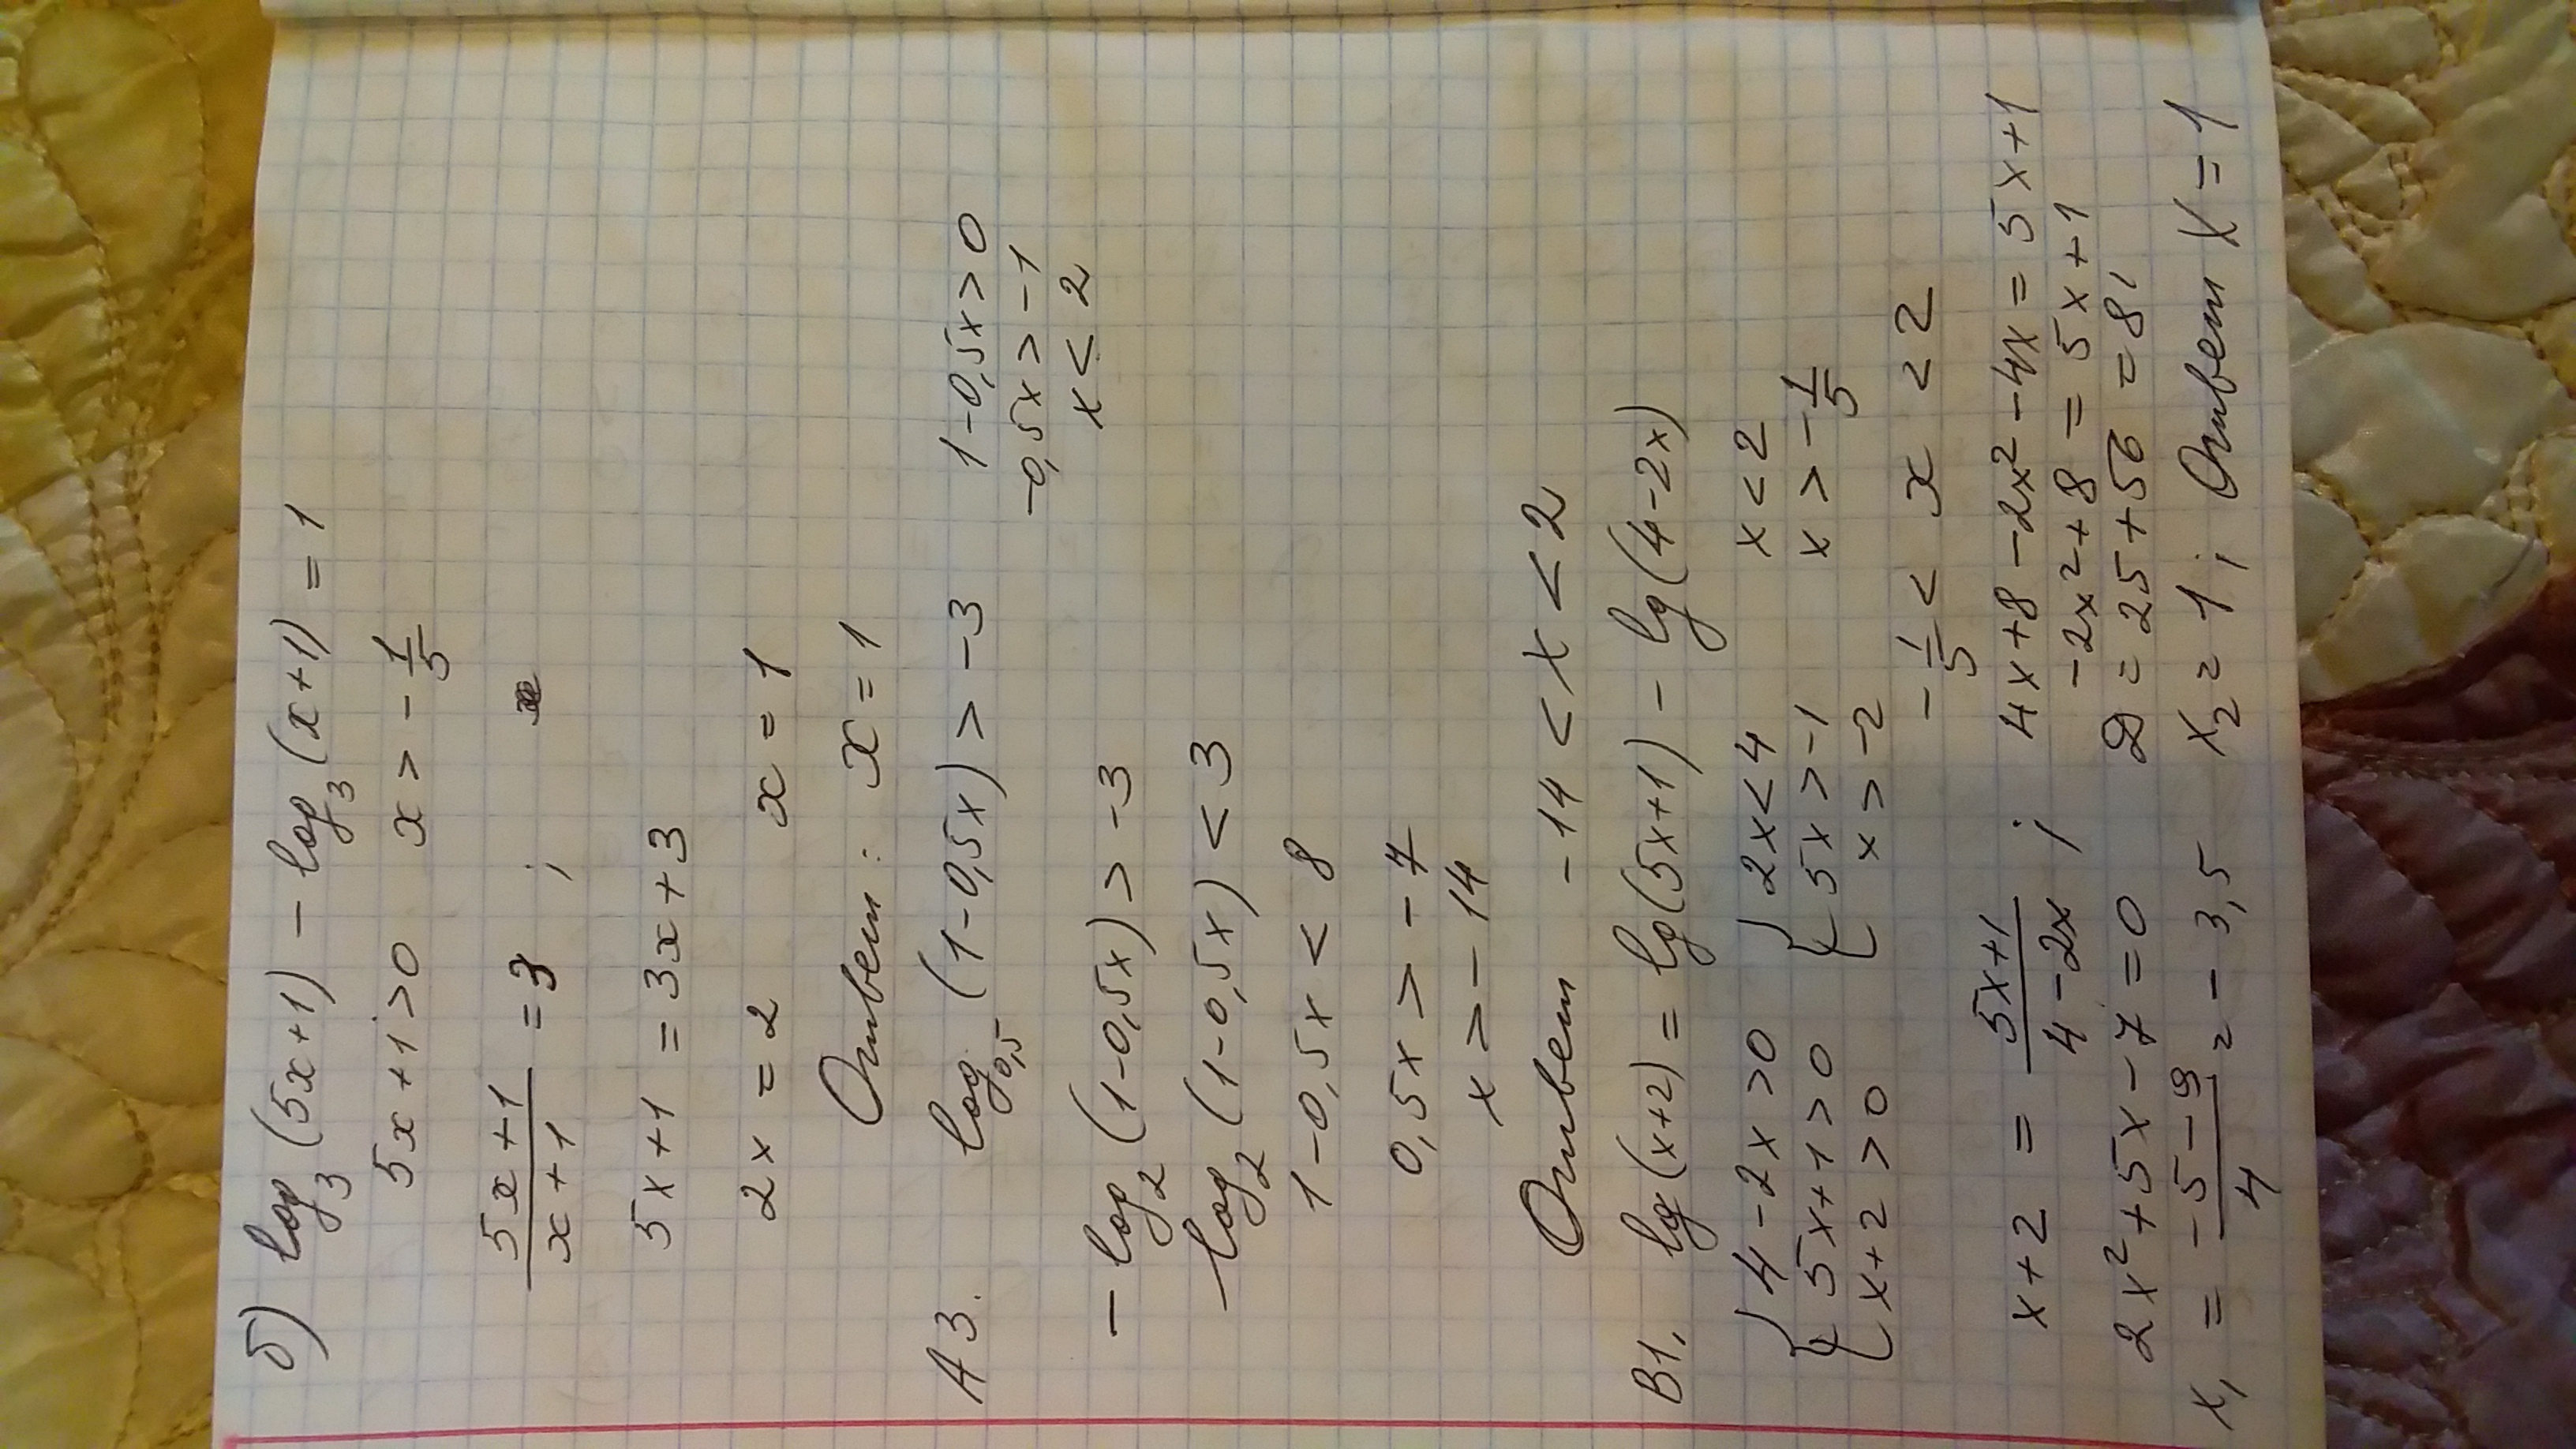 б) log₃(5x+1) - log₃(x+1) = 1
5x+1>0   x > -1/5
(5x+1)/(x+1) = 3 ;
5x+1 = 3x+3
2x = 2   x = 1
Ответ: x = 1
А3. log₀,₅(1-0,5x) > -3   1-0,5x>0
-0,5x > -1
- log₂(1-0,5x) > -3   x < 2
log₂(1-0,5x) < 3
1-0,5x < 8
0,5x > -7
x > -14
Ответ -14 < x < 2
В1. lg(x+2) = lg(5x+1) - lg(4-2x)
{ 4-2x>0   { 2x<4   x<2
5x+1>0   5x>-1   x > -1/5
x+2>0   x>-2
-1/5 < x < 2
x+2 = (5x+1)/(4-2x) ;   4x+8-2x²-4x = 5x+1
-2x²+8 = 5x+1
2x²+5x-7=0   D = 25+56 = 81
x₁ = (-5-9)/4 = -3,5   x₂ = 1 ; Ответ x=1